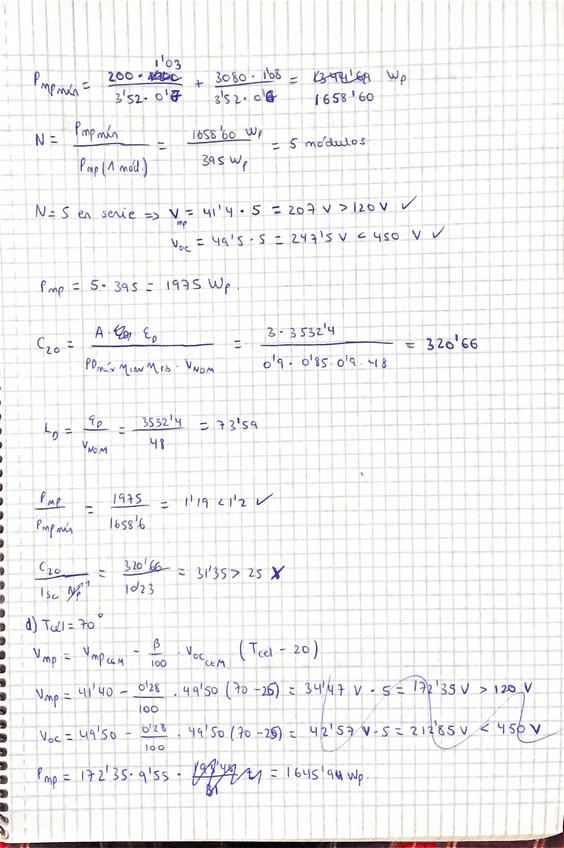 P mp mín = 200 · 1'03 / 3'52 · 0'6 + 3080 · 1'08 / 3'52 · 0'6 = 1658'60 Wp
N = P mp mín / P mp (1 mód.) = 1658'60 Wp / 395 Wp = 5 módulos
N = 5 en serie => V mp = 41'4 · 5 = 207 V > 120 V ✓
Voc = 49'5 · 5 = 247'5 V < 450 V ✓
P mp = 5 · 395 = 1975 Wp.
C20 = A · ξD / PD máx η INV η rb · V NOM = 3 · 3532'4 / 0'9 · 0'85 · 0'9 · 48 = 320'66
LD = ξD / V NOM = 3532'4 / 48 = 73'59
P mp / P mp mín = 1975 / 1658'6 = 1'19 < 1'2 ✓
C20 / Isc Np = 320'66 / 10'23 = 31'35 > 25 X
d) T cel = 70°
V mp = V mp CEM - β / 100 · Voc CEM (T cel - 20)
V mp = 41'40 - 0'28 / 100 · 49'50 (70 - 25) = 34'47 V · 5 = 172'35 V > 120 V
Voc = 49'50 - 0'28 / 100 · 49'50 (70 - 25) = 42'57 V · 5 = 212'85 V < 450 V
P mp = 172'35 · 9'55 · = 1645'94 Wp.